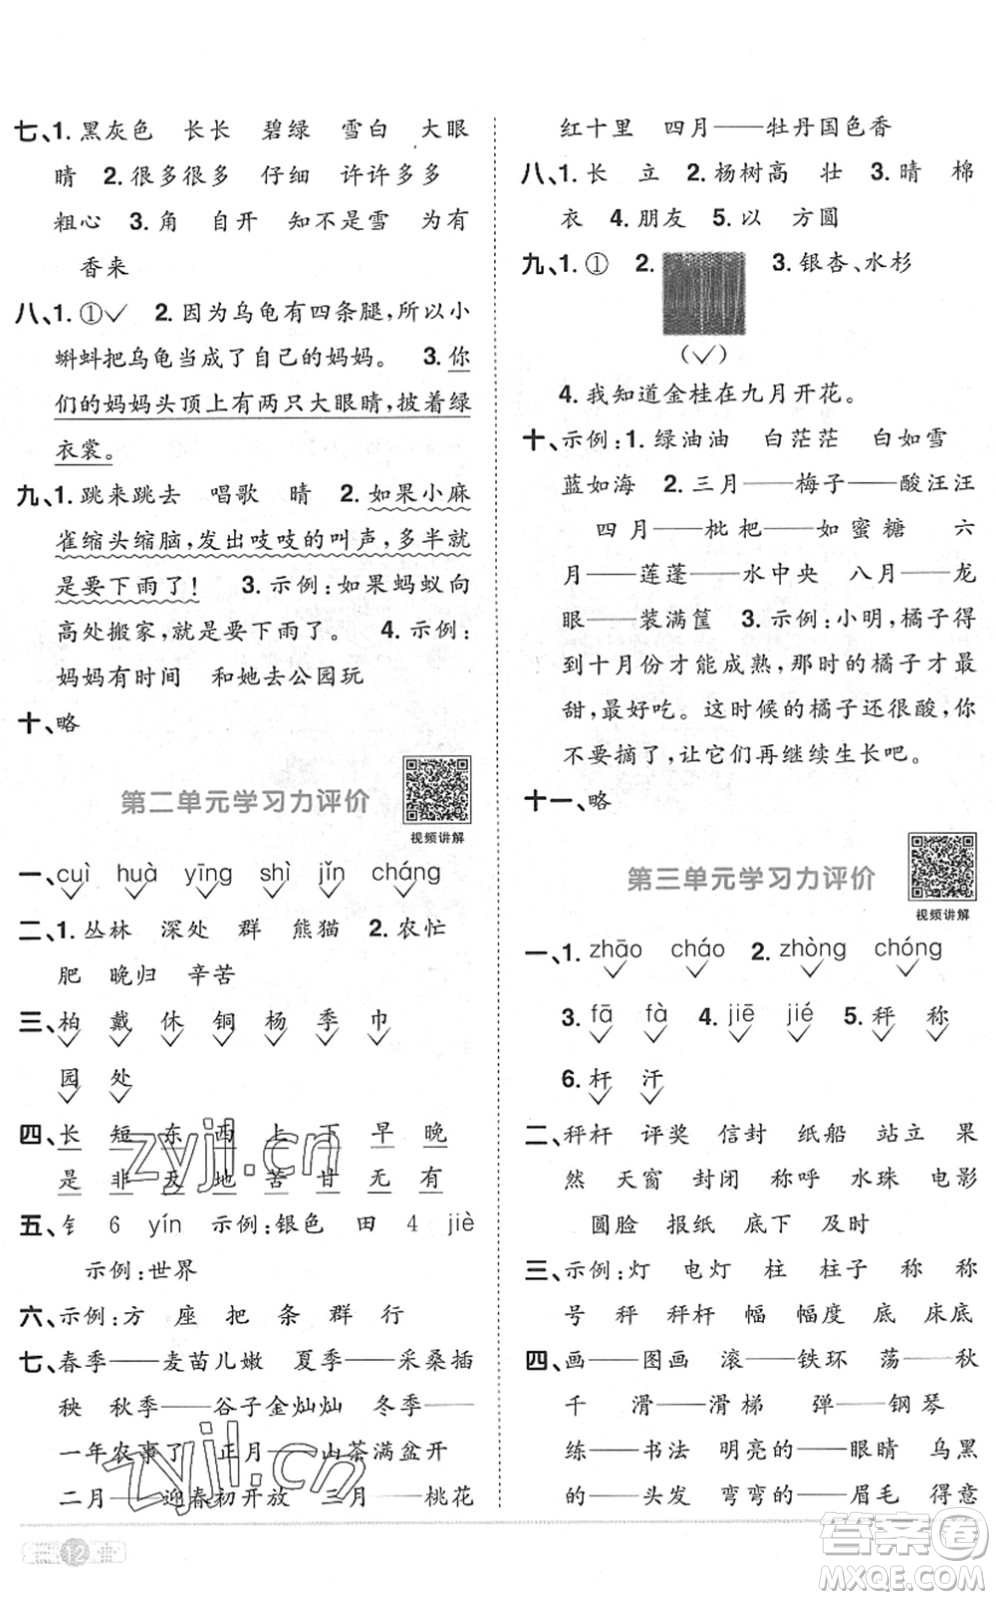 七、1. 黑灰色 长长 碧绿 雪白 大眼
睛 2. 很多很多 仔细 许许多多
粗心 3. 角 自开 不是雪 为有
香来
八、1. ①✓ 2. 因为乌龟有四条腿,所以小
蝌蚪把乌龟当成了自己的妈妈。 3. 你
们的妈妈头顶上有两只大眼睛,披着绿
衣裳。
九、1. 跳来跳去 唱歌 晴 2. 如果小麻
雀缩头缩脑,发出吱吱的叫声,多半就
是要下雨了! 3. 示例:如果蚂蚁向
高处搬家,就是要下雨了。 4. 示例:
妈妈有时间 和她去公园玩
十、略
第二单元学习力评价
视频讲解
一、cuì huà yīng shì jǐn cháng
二、1. 丛林 深处 群 熊猫 2. 农忙
肥 晚归 辛苦
三、柏 戴 休 铜 杨 季 巾
园 处
四、长 短 东 西 上 下 早 晚
是 非 天 地 苦 甘 无 有
五、钅 6 yín 示例:银色 田 4 jiè
示例:世界
六、示例:方 座 把 条 群 行
七、春季——麦苗儿嫩 夏季——采桑插
秧 秋季——谷子金灿灿 冬季——
一年农事了 正月——山茶满盆开
二月——迎春初开放 三月——桃花
红十里 四月——牡丹国色香
八、1. 长 立 2. 杨树高 壮 3. 晴 棉
衣 4. 朋友 5. 以 方圆
九、1. ① 2. 3. 银杏、水杉
(✓)
4. 我知道金桂在九月开花。
十、示例:1. 绿油油 白茫茫 白如雪
蓝如海 2. 三月——梅子——酸汪汪
四月——枇杷——如蜜糖 六
月——莲蓬——水中央 八月——龙
眼——装满筐 3. 示例:小明,橘子得
到十月份才能成熟,那时的橘子才最
甜,最好吃。这时候的橘子还很酸,你
不要摘了,让它们再继续生长吧。
十一、略
第三单元学习力评价
视频讲解
一、1. zhāo cháo 2. zhòng chóng
3. fā fà 4. jiē jié 5. 秤 称
6. 杆 汗
二、秤杆 评奖 信封 纸船 站立 果
然 天窗 封闭 称呼 水珠 电影
圆脸 报纸 底下 及时
三、示例:灯 电灯 柱 柱子 称 称
号 秤 秤杆 幅 幅度 底 床底
四、画——图画 滚——铁环 荡——秋
千 滑——滑梯 弹——钢琴
练——书法 明亮的——眼睛 乌黑
的——头发 弯弯的——眉毛 得意
12
zyjl.cn
zyjl.cn
答案圈
MXQE.COM